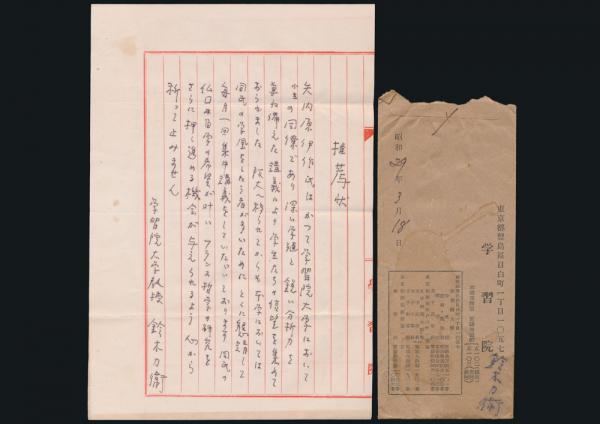 推薦状
矢内原伊作氏はかつて学習院大学において
小生の同僚であり 深い学殖と鋭い分析力を
兼ね備えた講義により学生たちの信望を集めて
おられました 阪大へ移られてからも本学においては
同氏の学風をしたう者が多いために とくに懇請して
毎月一回集中講義をしていただいております 同氏の
仏国留学の希望が叶い フランス哲学の研究を
さらに押し進める機会が与えられるよう 心から
祈って止みません
学習院大学教授 鈴木力衛
學習院
昭和29年3月18日
東京都豐島區目白町一丁目一〇五七
學習院
鈴木力衛